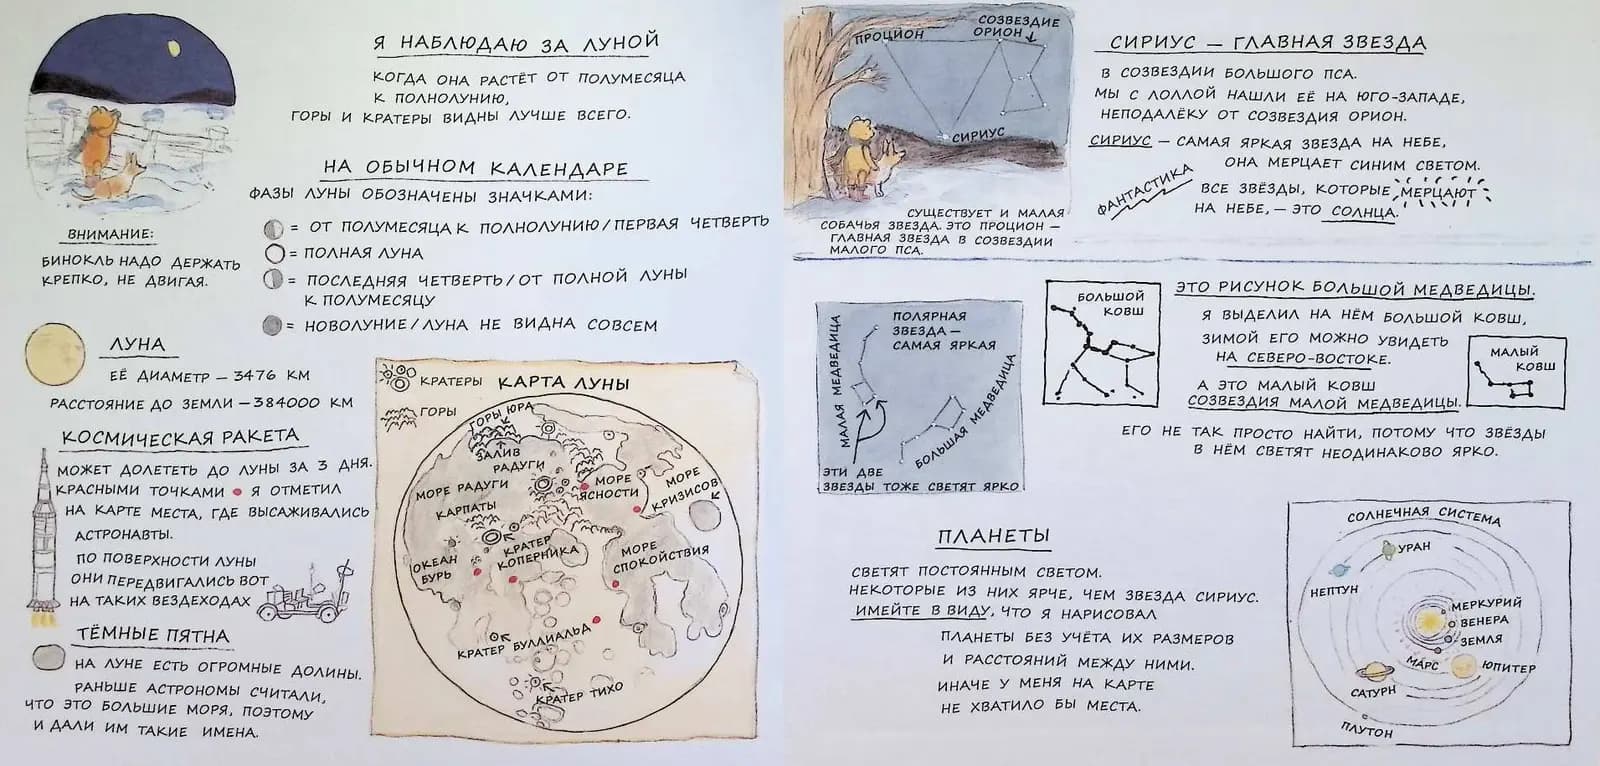 Я НАБЛЮДАЮ ЗА ЛУНОЙ
КОГДА ОНА РАСТЁТ ОТ ПОЛУМЕСЯЦА
К ПОЛНОЛУНИЮ,
ГОРЫ И КРАТЕРЫ ВИДНЫ ЛУЧШЕ ВСЕГО.
НА ОБЫЧНОМ КАЛЕНДАРЕ
ФАЗЫ ЛУНЫ ОБОЗНАЧЕНЫ ЗНАЧКАМИ:
= ОТ ПОЛУМЕСЯЦА К ПОЛНОЛУНИЮ/ПЕРВАЯ ЧЕТВЕРТЬ
= ПОЛНАЯ ЛУНА
= ПОСЛЕДНЯЯ ЧЕТВЕРТЬ/ОТ ПОЛНОЙ ЛУНЫ
К ПОЛУМЕСЯЦУ
= НОВОЛУНИЕ/ЛУНА НЕ ВИДНА СОВСЕМ
ВНИМАНИЕ:
БИНОКЛЬ НАДО ДЕРЖАТЬ
КРЕПКО, НЕ ДВИГАЯ.
ЛУНА
ЕЁ ДИАМЕТР – 3476 КМ
РАССТОЯНИЕ ДО ЗЕМЛИ – 384000 КМ
КОСМИЧЕСКАЯ РАКЕТА
МОЖЕТ ДОЛЕТЕТЬ ДО ЛУНЫ ЗА 3 ДНЯ.
КРАСНЫМИ ТОЧКАМИ • Я ОТМЕТИЛ
НА КАРТЕ МЕСТА, ГДЕ ВЫСАЖИВАЛИСЬ
АСТРОНАВТЫ.
ПО ПОВЕРХНОСТИ ЛУНЫ
ОНИ ПЕРЕДВИГАЛИСЬ ВОТ
НА ТАКИХ ВЕЗДЕХОДАХ
ТЁМНЫЕ ПЯТНА
НА ЛУНЕ ЕСТЬ ОГРОМНЫЕ ДОЛИНЫ.
РАНЬШЕ АСТРОНОМЫ СЧИТАЛИ,
ЧТО ЭТО БОЛЬШИЕ МОРЯ, ПОЭТОМУ
И ДАЛИ ИМ ТАКИЕ ИМЕНА.
КРАТЕРЫ
КАРТА ЛУНЫ
ГОРЫ
ГОРЫ ЮРА
ЗАЛИВ
РАДУГИ
МОРЕ РАДУГИ
МОРЕ
ЯСНОСТИ
МОРЕ
КРИЗИСОВ
КАРПАТЫ
КРАТЕР
КОПЕРНИКА
ОКЕАН
БУРЬ
МОРЕ
СПОКОЙСТВИЯ
КРАТЕР БУЛЛИАЛЬД
КРАТЕР ТИХО
СОЗВЕЗДИЕ
ОРИОН
ПРОЦИОН
СИРИУС
СУЩЕСТВУЕТ И МАЛАЯ
СОБАЧЬЯ ЗВЕЗДА. ЭТО ПРОЦИОН –
ГЛАВНАЯ ЗВЕЗДА В СОЗВЕЗДИИ
МАЛОГО ПСА.
СИРИУС – ГЛАВНАЯ ЗВЕЗДА
В СОЗВЕЗДИИ БОЛЬШОГО ПСА.
МЫ С ЛОЛЛОЙ НАШЛИ ЕЁ НА ЮГО-ЗАПАДЕ,
НЕПОДАЛЁКУ ОТ СОЗВЕЗДИЯ ОРИОН.
СИРИУС – САМАЯ ЯРКАЯ ЗВЕЗДА НА НЕБЕ,
ОНА МЕРЦАЕТ СИНИМ СВЕТОМ.
ФАНТАСТИКА
ВСЕ ЗВЁЗДЫ, КОТОРЫЕ МЕРЦАЮТ
НА НЕБЕ, – ЭТО СОЛНЦА.
ПОЛЯРНАЯ
ЗВЕЗДА –
САМАЯ ЯРКАЯ
МАЛАЯ МЕДВЕДИЦА
БОЛЬШАЯ МЕДВЕДИЦА
ЭТИ ДВЕ
ЗВЕЗДЫ ТОЖЕ СВЕТЯТ ЯРКО
БОЛЬШОЙ
КОВШ
ЭТО РИСУНОК БОЛЬШОЙ МЕДВЕДИЦЫ.
Я ВЫДЕЛИЛ НА НЁМ БОЛЬШОЙ КОВШ,
ЗИМОЙ ЕГО МОЖНО УВИДЕТЬ
НА СЕВЕРО-ВОСТОКЕ.
А ЭТО МАЛЫЙ КОВШ
СОЗВЕЗДИЯ МАЛОЙ МЕДВЕДИЦЫ.
МАЛЫЙ
КОВШ
ЕГО НЕ ТАК ПРОСТО НАЙТИ, ПОТОМУ ЧТО ЗВЁЗДЫ
В НЁМ СВЕТЯТ НЕОДИНАКОВО ЯРКО.
ПЛАНЕТЫ
СВЕТЯТ ПОСТОЯННЫМ СВЕТОМ.
НЕКОТОРЫЕ ИЗ НИХ ЯРЧЕ, ЧЕМ ЗВЕЗДА СИРИУС.
ИМЕЙТЕ В ВИДУ, ЧТО Я НАРИСОВАЛ
ПЛАНЕТЫ БЕЗ УЧЁТА ИХ РАЗМЕРОВ
И РАССТОЯНИЙ МЕЖДУ НИМИ.
ИНАЧЕ У МЕНЯ НА КАРТЕ
НЕ ХВАТИЛО БЫ МЕСТА.
СОЛНЕЧНАЯ СИСТЕМА
УРАН
НЕПТУН
МЕРКУРИЙ
ВЕНЕРА
ЗЕМЛЯ
МАРС
ЮПИТЕР
САТУРН
ПЛУТОН